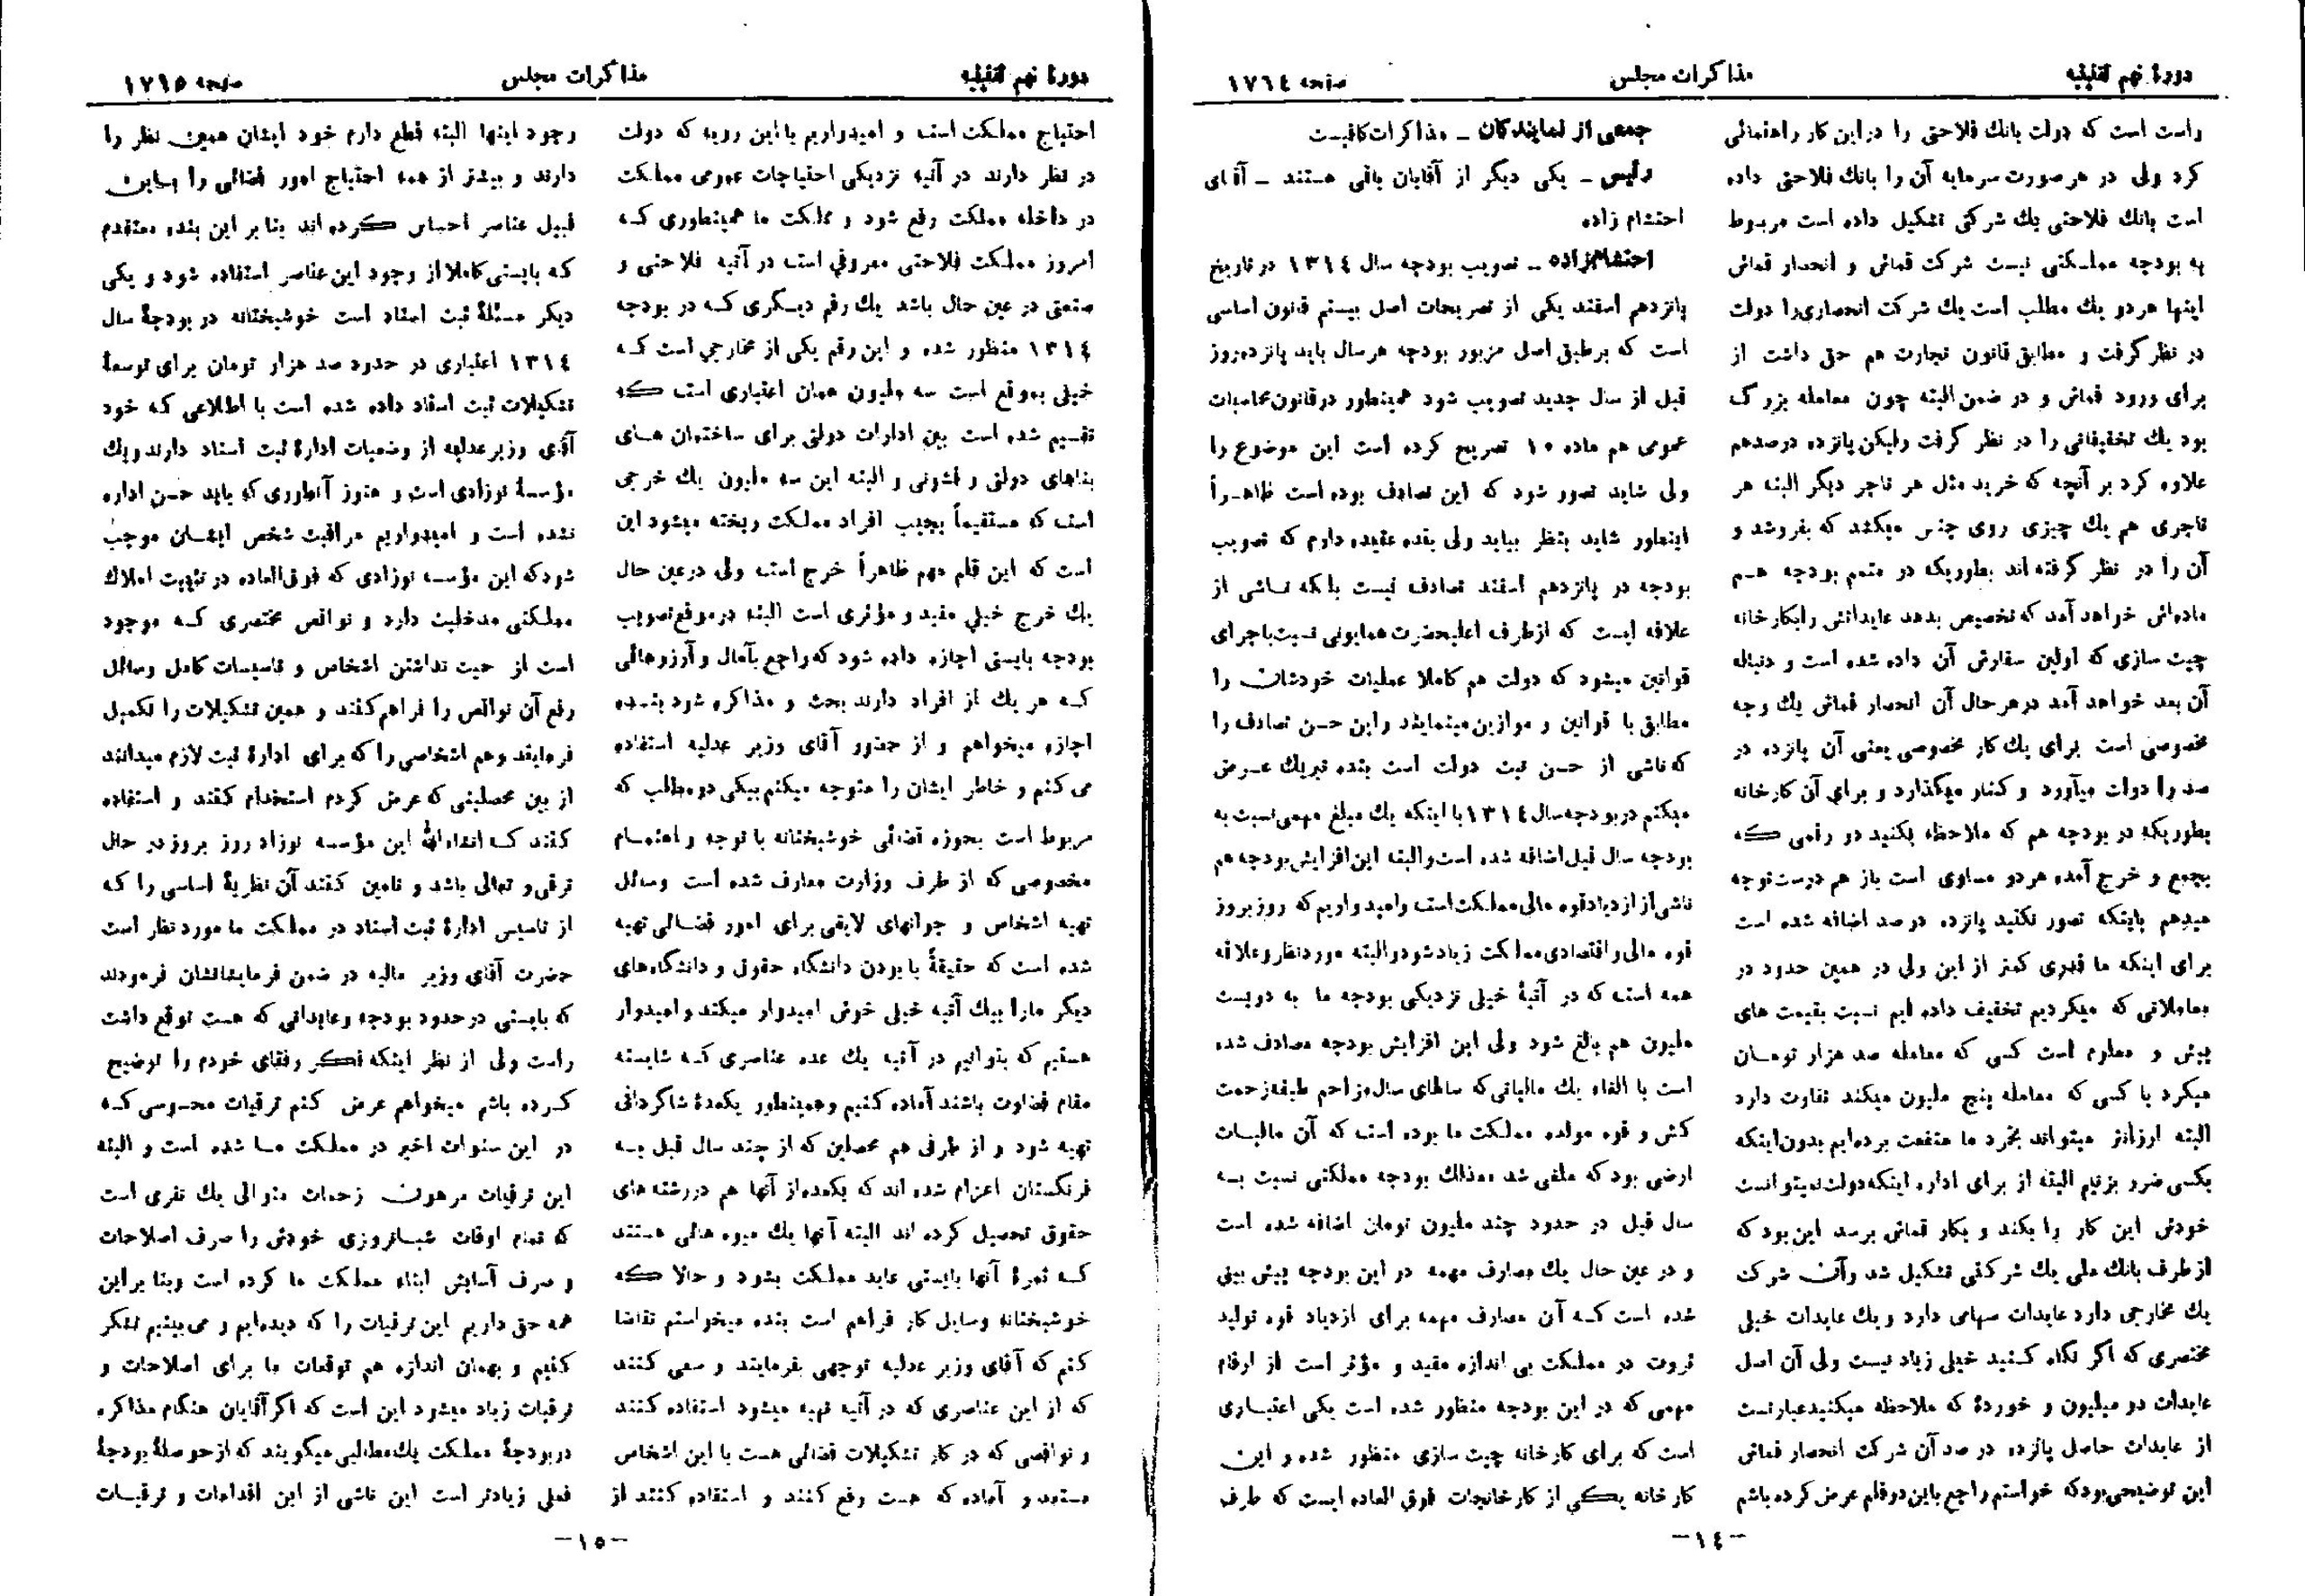 دورهٔ نهم تقنینیه
مذاکرات مجلس
صفحه ۱۷٦٤
راست است که دولت بانك فلاحتی را در این کار راهنمائی
کرد ولی در هر صورت سرمایه آن را بانك فلاحتی داده
است بانك فلاحتی یك شرکتی تشکیل داده است مربوط
به بودجه مملکتی نیست شرکت قماش و انحصار قماش
اینها هر دو یك مطلب است یك شرکت انحصاری را دولت
در نظر گرفت و مطابق قانون تجارت هم حق داشت از
برای ورود قماش و در ضمن البته چون معامله بزرگ
بود یك تخفیفاتی را در نظر گرفت ولیکن پانزده درصد هم
علاوه کرد بر آنچه که خرید مثل هر تاجر دیگر البته هر
تاجری هم یك چیزی روی جنس میکشد که بفروشد و
آن را در نظر گرفته اند بطوریکه در متمم بودجه هم
ماده‌ئی خواهد آمد که تخصیص بدهد عایداتش را بکارخانه
چیت سازی که اولین سفارش آن داده شده است و دنباله
آن بعد خواهد آمد در هر حال آن انحصار قماش یك وجه
مخصوصی است برای یك کار مخصوصی یعنی آن پانزده در
صد را دولت میآورد و کنار میگذارد و برای آن کارخانه
بطوریکه در بودجه هم که ملاحظه بکنید دو رقمی که
بجمع و خرج آمده هر دو مساوی است باز هم درست توجه
میدهم باینکه تصور نکنید پانزده درصد اضافه شده است
برای اینکه ما قدری کمتر از این ولی در همین حدود در
معاملاتی که میکردیم تخفیف داده ایم نسبت بقیمت های
پیش و معلوم است کسی که معامله صد هزار تومان
میکرد با کسی که معامله پنج ملیون میکند تفاوت دارد
البته ارزانتر میتواند بخرد ما منفعت برده‌ایم بدون اینکه
بکسی ضرر بزنیم البته از برای اداره اینکه دولت نمیتوانست
خودش این کار را بکند و بکار قماش برسد این بود که
از طرف بانك ملی یك شرکتی تشکیل شد و آن شرکت
یك مخارجی دارد عایدات سهامی دارد و یك عایدات خیلی
مختصری که اگر نگاه کنید خیلی زیاد نیست ولی آن اصل
عایدات دو میلیون و خوردهٔ که ملاحظه میکنید عبارتست
از عایدات حاصل پانزده در صد آن شرکت انحصار قماش
این توضیحی بود که خواستم راجع باین دو قلم عرض کرده باشم
جمعی از نمایندگان ـ مذاکرات کافیست
رئیس ـ یکی دیگر از آقایان باقی هستند ـ آقای
احتشام زاده
احتشام‌زاده ـ تصویب بودجه سال ۱۳۱٤ در تاریخ
پانزدهم اسفند یکی از تصریحات اصل بیستم قانون اساسی
است که بر طبق اصل مزبور بودجه هر سال باید پانزده روز
قبل از سال جدید تصویب شود همینطور در قانون محاسبات
عمومی هم ماده ۱۰ تصریح کرده است این موضوع را
ولی شاید تصور شود که این تصادف بوده است ظاهراً
اینطور شاید بنظر بیاید ولی بنده عقیده دارم که تصویب
بودجه در پانزدهم اسفند تصادف نیست بلکه ناشی از
علاقه ایست که از طرف اعلیحضرت همایونی نسبت باجرای
قوانین میشود که دولت هم کاملا عملیات خودشان را
مطابق با قوانین و موازین مینمایند و این حسن تصادف را
که ناشی از حسن نیت دولت است بنده تبریك عرض
میکنم در بودجه سال ۱۳۱٤ با اینکه یك مبلغ مهمی نسبت به
بودجه سال قبل اضافه شده است و البته این افزایش بودجه هم
ناشی از ازدیاد قوه مالی مملکت است و امیدواریم که روز بروز
قوه مالی و اقتصادی مملکت زیاد شود و البته مورد نظر و علاقه
همه است که در آتیهٔ خیلی نزدیکی بودجه ما به دویست
ملیون هم بالغ شود ولی این افزایش بودجه مصادف شده
است با الغاء یك مالیاتی که سالهای سال مزاحم طبقه زحمت
کش و قوه مولده مملکت ما بوده است که آن مالیات
ارضی بود که ملغی شد معذلك بودجه مملکتی نسبت به
سال قبل در حدود چند ملیون تومان اضافه شده است
و در عین حال یك مصارف مهمه در این بودجه پیش بینی
شده است که آن مصارف مهمه برای ازدیاد قوه تولید
ثروت در مملکت بی اندازه مفید و مؤثر است از ارقام
مهمی که در این بودجه منظور شده است یکی اعتباری
است که برای کارخانه چیت سازی منظور شده و این
کارخانه یکی از کارخانجات فوق العاده ایست که طرف
ـ۱٤ـ
دورهٔ نهم تقنینیه
مذاکرات مجلس
صفحه ۱۷٦٥
احتیاج مملکت است و امیدواریم با این رویه که دولت
در نظر دارند در آتیه نزدیکی احتیاجات عمومی مملکت
در داخله مملکت رفع شود و مملکت ما همینطوری که
امروز مملکت فلاحتی معروفی است در آتیه فلاحتی و
صنعتی در عین حال باشد یك رقم دیگری که در بودجه
۱۳۱٤ منظور شده و این رقم یکی از مخارجی است که
خیلی بموقع است سه ملیون همان اعتباری است که
تقسیم شده است بین ادارات دولتی برای ساختمان های
بناهای دولتی و قشونی و البته این سه ملیون یك خرجی
است که مستقیماً بجیب افراد مملکت ریخته میشود این
است که این قلم مهم ظاهراً خرج است ولی در عین حال
یك خرج خیلی مفید و مؤثری است البته در موقع تصویب
بودجه بایستی اجازه داده شود که راجع بآمال و آرزوهائی
که هر یك از افراد دارند بحث و مذاکره شود بنده
اجازه میخواهم و از حضور آقای وزیر عدلیه استفاده
می کنم و خاطر ایشان را متوجه میکنم بیکی دو مطلب که
مربوط است بحوزه قضائی خوشبختانه با توجه و اهتمام
مخصوصی که از طرف وزارت معارف شده است وسائل
تهیه اشخاص و جوانهای لایقی برای امور قضائی تهیه
شده است که حقیقةً با بودن دانشگاه حقوق و دانشگاه‌های
دیگر ما را بیك آتیه خیلی خوش امیدوار میکند و امیدوار
هستیم که بتوانیم در آتیه یك عده عناصری که شایسته
مقام قضاوت باشند آماده کنیم و همینطور یکعدهٔ شاگردانی
تهیه شود و از طرفی هم محصلین که از چند سال قبل به
فرنگستان اعزام شده اند که یکعده از آنها هم در رشته های
حقوق تحصیل کرده اند البته آنها یك میوه هائی هستند
که ثمرهٔ آنها بایستی عاید مملکت بشود و حالا که
خوشبختانه وسایل کار فراهم است بنده میخواستم تقاضا
کنم که آقای وزیر عدلیه توجهی بفرمایند و سعی کنند
که از این عناصری که در آتیه تهیه میشود استفاده کنند
و نواقصی که در کار تشکیلات قضائی هست با این اشخاص
مستعد و آماده که هست رفع کنند و استفاده کنند از
وجود اینها البته قطع دارم خود ایشان همین نظر را
دارند و بیشتر از همه احتیاج امور قضائی را باین
قبیل عناصر احساس کرده اند بنا بر این بنده معتقدم
که بایستی کاملا از وجود این عناصر استفاده شود و یکی
دیگر مسئلهٔ ثبت اسناد است خوشبختانه در بودجهٔ سال
۱۳۱٤ اعتباری در حدود صد هزار تومان برای توسعهٔ
تشکیلات ثبت اسناد داده شده است با اطلاعی که خود
آقای وزیر عدلیه از وضعیات ادارهٔ ثبت اسناد دارند و یك
مؤسسهٔ نوزادی است و هنوز آنطوری که باید حسن اداره
نشده است و امیدواریم مراقبت شخص ایشان موجب
شود که این مؤسسه نوزادی که فوق العاده در تثبیت املاك
مملکتی مدخلیت دارد و نواقص مختصری که موجود
است از حیث نداشتن اشخاص و تاسیسات کامل وسائل
رفع آن نواقص را فراهم کنند و همین تشکیلات را تکمیل
فرمایند و هم اشخاصی را که برای ادارهٔ ثبت لازم میدانند
از بین محصلینی که عرض کردم استخدام کنند و استفاده
کنند که انشاءالله این مؤسسه نوزاد روز بروز در حال
ترقی و تعالی باشد و تامین کنند آن نظریهٔ اساسی را که
از تاسیس ادارهٔ ثبت اسناد در مملکت ما مورد نظر است
حضرت آقای وزیر مالیه در ضمن فرمایشاتشان فرمودند
که بایستی در حدود بودجه و عایداتی که هست توقع داشت
راست ولی از نظر اینکه فکر رفقای خودم را توضیح
کرده باشم میخواهم عرض کنم ترقیات محسوسی که
در این سنوات اخیر در مملکت ما شده است و البته
این ترقیات مرهون زحمات متوالی یك نفری است
که تمام اوقات شبانروزی خودش را صرف اصلاحات
و صرف آسایش ابناء مملکت ما کرده است و بنا بر این
همه حق داریم این ترقیات را که دیده‌ایم و می بینیم تشکر
کنیم و بهمان اندازه هم توقعات ما برای اصلاحات و
ترقیات زیاد میشود این است که اگر آقایان هنگام مذاکره
در بودجهٔ مملکت یك مطالبی میگویند که از حوصلهٔ بودجهٔ
فعلی زیادتر است این ناشی از این اقدامات و ترقیات
ـ۱٥ـ